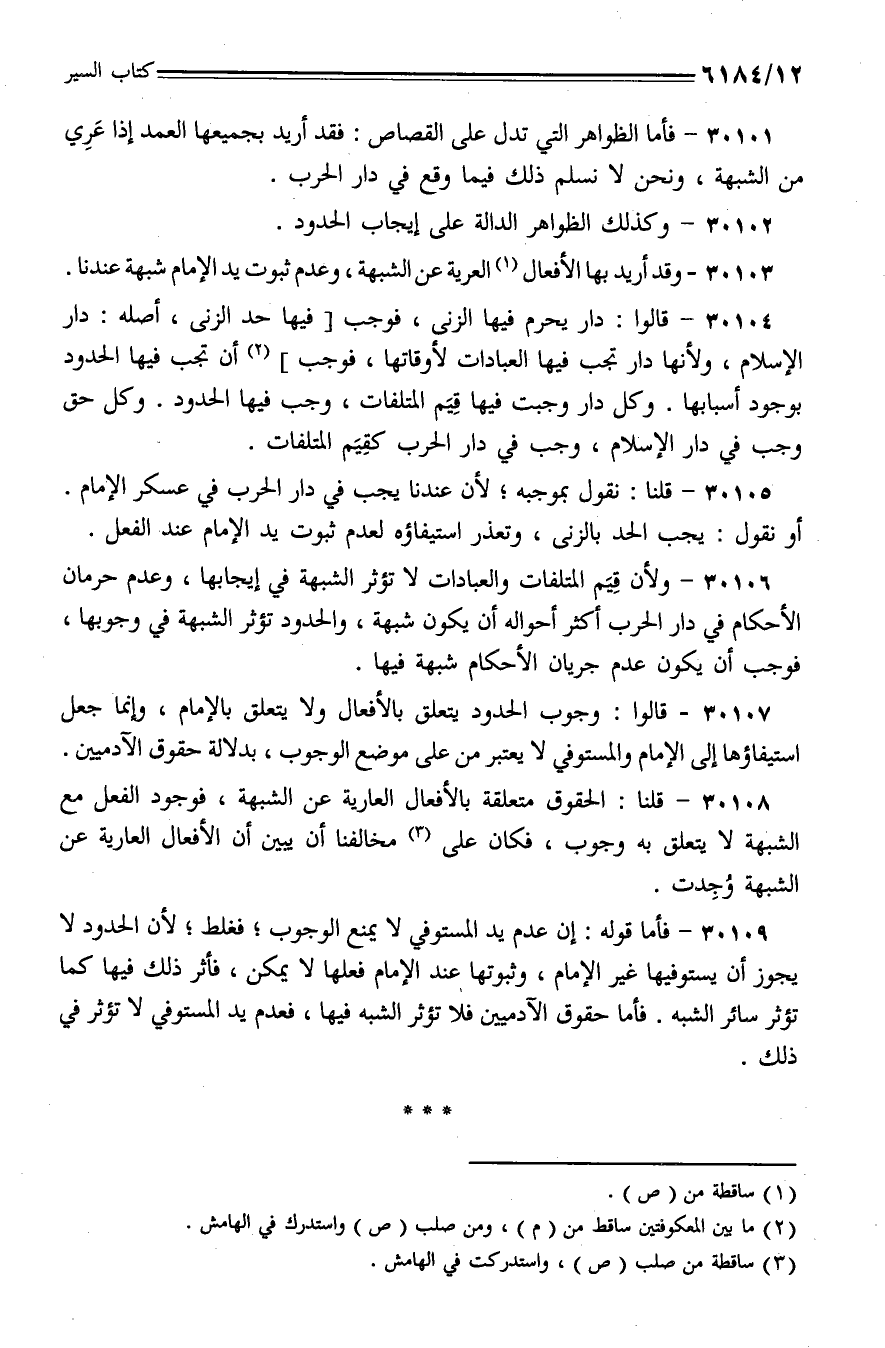 ٦١٨٤/١٢ كتاب السير
٣٠١٠١ - فأما الظواهر التي تدل على القصاص : فقد أريد بجميعها العمد إذا عَرِي
من الشبهة ، ونحن لا نسلم ذلك فيما وقع في دار الحرب .
٣٠١٠٢ - وكذلك الظواهر الدالة على إيجاب الحدود .
٣٠١٠٣ - وقد أريد بها الأفعال (١) العرية عن الشبهة ، وعدم ثبوت يد الإمام شبهة عندنا .
٣٠١٠٤ - قالوا : دار يحرم فيها الزنى ، فوجب [ فيها حد الزنى ، أصله : دار
الإسلام ، ولأنها دار تجب فيها العبادات لأوقاتها ، فوجب ] (٢) أن تجب فيها الحدود
بوجود أسبابها . وكل دار وجبت فيها قِيَم المتلفات ، وجب فيها الحدود . وكل حق
وجب في دار الإسلام ، وجب في دار الحرب كقِيَم المتلفات .
٣٠١٠٥ - قلنا : نقول بموجبه ؛ لأن عندنا يجب في دار الحرب في عسكر الإمام .
أو نقول : يجب الحد بالزنى ، وتعذر استيفاؤه لعدم ثبوت يد الإمام عند الفعل .
٣٠١٠٦ - ولأن قِيَم المتلفات والعبادات لا تؤثر الشبهة في إيجابها ، وعدم حرمان
الأحكام في دار الحرب أكثر أحواله أن يكون شبهة ، والحدود تؤثر الشبهة في وجوبها ،
فوجب أن يكون عدم جريان الأحكام شبهة فيها .
٣٠١٠٧ - قالوا : وجوب الحدود يتعلق بالأفعال ولا يتعلق بالإمام ، وإنما جعل
استيفاؤها إلى الإمام والمستوفي لا يعتبر من على موضع الوجوب ، بدلالة حقوق الآدميين .
٣٠١٠٨ - قلنا : الحقوق متعلقة بالأفعال العارية عن الشبهة ، فوجود الفعل مع
الشبهة لا يتعلق به وجوب ، فكان على (٣) مخالفنا أن يبين أن الأفعال العارية عن
الشبهة وُجِدت .
٣٠١٠٩ - فأما قوله : إن عدم يد المستوفي لا يمنع الوجوب ؛ فغلط ؛ لأن الحدود لا
يجوز أن يستوفيها غير الإمام ، وثبوتها عند الإمام فعلها لا يمكن ، فأثر ذلك فيها كما
تؤثر سائر الشبه . فأما حقوق الآدميين فلا تؤثر الشبه فيها ، فعدم يد المستوفي لا تؤثر في
ذلك .
* * *
(١) ساقطة من ( ص ) .
(٢) ما بين المعكوفتين ساقط من ( م ) ، ومن صلب ( ص ) واستدرك في الهامش .
(٣) ساقطة من صلب ( ص ) ، واستدركت في الهامش .